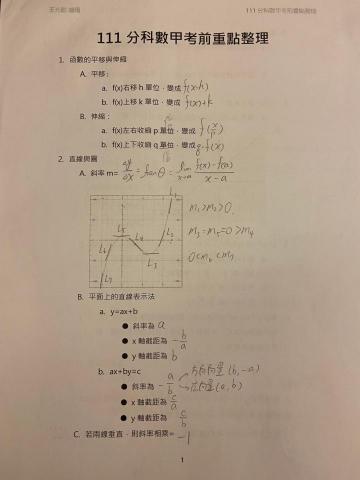 111 分科數甲考前重點整理
111 分科數甲考前重點整理
1. 函數的平移與伸縮
A. 平移：
a. f(x)右移 h 單位，變成 f(x-h)
b. f(x)上移 k 單位，變成 f(x)+k
B. 伸縮：
a. f(x)左右收縮 p 單位，變成 f(x/p)
b. f(x)上下收縮 q 單位，變成 q·f(x)
2. 直線與圓
A. 斜率 m= Δy/Δx = tanθ = lim x→a f(x)-f(a)/x-a
L₁
L₂
L₃
L₄
L₅
L₆
L₇
m₁>m₂>0
m₃=m₅=0>m₄
0<m₆<m₇
B. 平面上的直線表示法
a. y=ax+b
● 斜率為 a
● x 軸截距為 -b/a
● y 軸截距為 b
b. ax+by=c
● 斜率為 -a/b → 方向向量 (b,-a)
→ 法向量 (a,b)
● x 軸截距為 c/a
● y 軸截距為 c/b
C. 若兩線垂直，則斜率相乘= -1
1